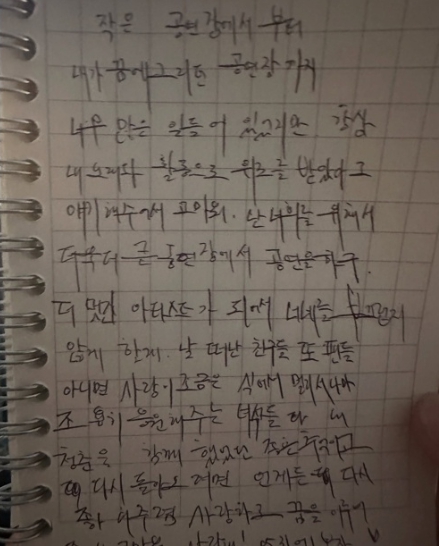 작은 공연장에서 부터
내가 꿈에 그리던 공연장 까지
너무 많은 일들이 있었지만 항상
내 노래와 활동으로 위로를 받았다고
얘기해주어서 고마워. 난 너희를 위해서
더욱더 큰 공연장에서 공연을 하구.
더 멋진 아티스트가 되어서 너네들 부끄럽지
않게 할게. 날 떠난 친구들 또 팬들
아니면 사랑이 조금은 식어서 멀리서나마
조용히 응원해주는 녀석들 다 내
청춘을 함께 했었던
다시 돌아오려면 언제든 다시
사랑하고 꿈을